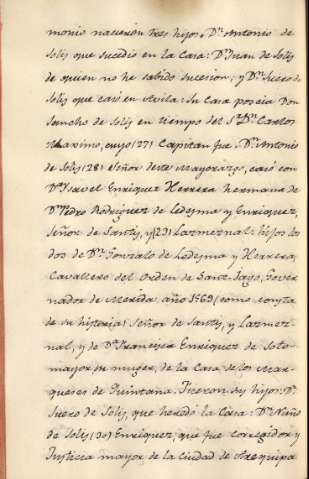 monio nacieron tres hijos: Dn. Antonio de
Solis que sucedio en la Casa: Dn. Juan de Solis
de quien no he sabido sucesion; y Dn. Suero de
Solis que casó en Avila: su Casa poseia Don
Sancho de Solis en tiempo del Sr. Dn. Carlos
Maximo, cuyo (27) Capitan fue. Dn. Antonio
de Solis (28) Señor deste Mayorazgo, casó con
Da. Ysavel Enriquez Herrera hermana de
Dn. Pedro Rodriguez de Ledesma y Enriquez,
Señor de Santis, y (29) Lazmeznal: hijos los
dos de Dn. Gonzalo de Ledesma y Herrera,
Cavallero del Orden de Santiago, Gover
nador de Merida, año 1563 (como consta
de su historia) Señor de Santis, y Lazmez-
nal, y de Da. Francisca Enriquez de Soto
mayor su muger, de la Casa de los Mar-
queses de Quintana. Fueron sus hijos: Dn.
Suero de Solis, que heredó la Casa: Dn. Nuño
de Solis (30) Enriquez, que fue corregidor y
Justicia mayor de la Ciudad de Arequipa